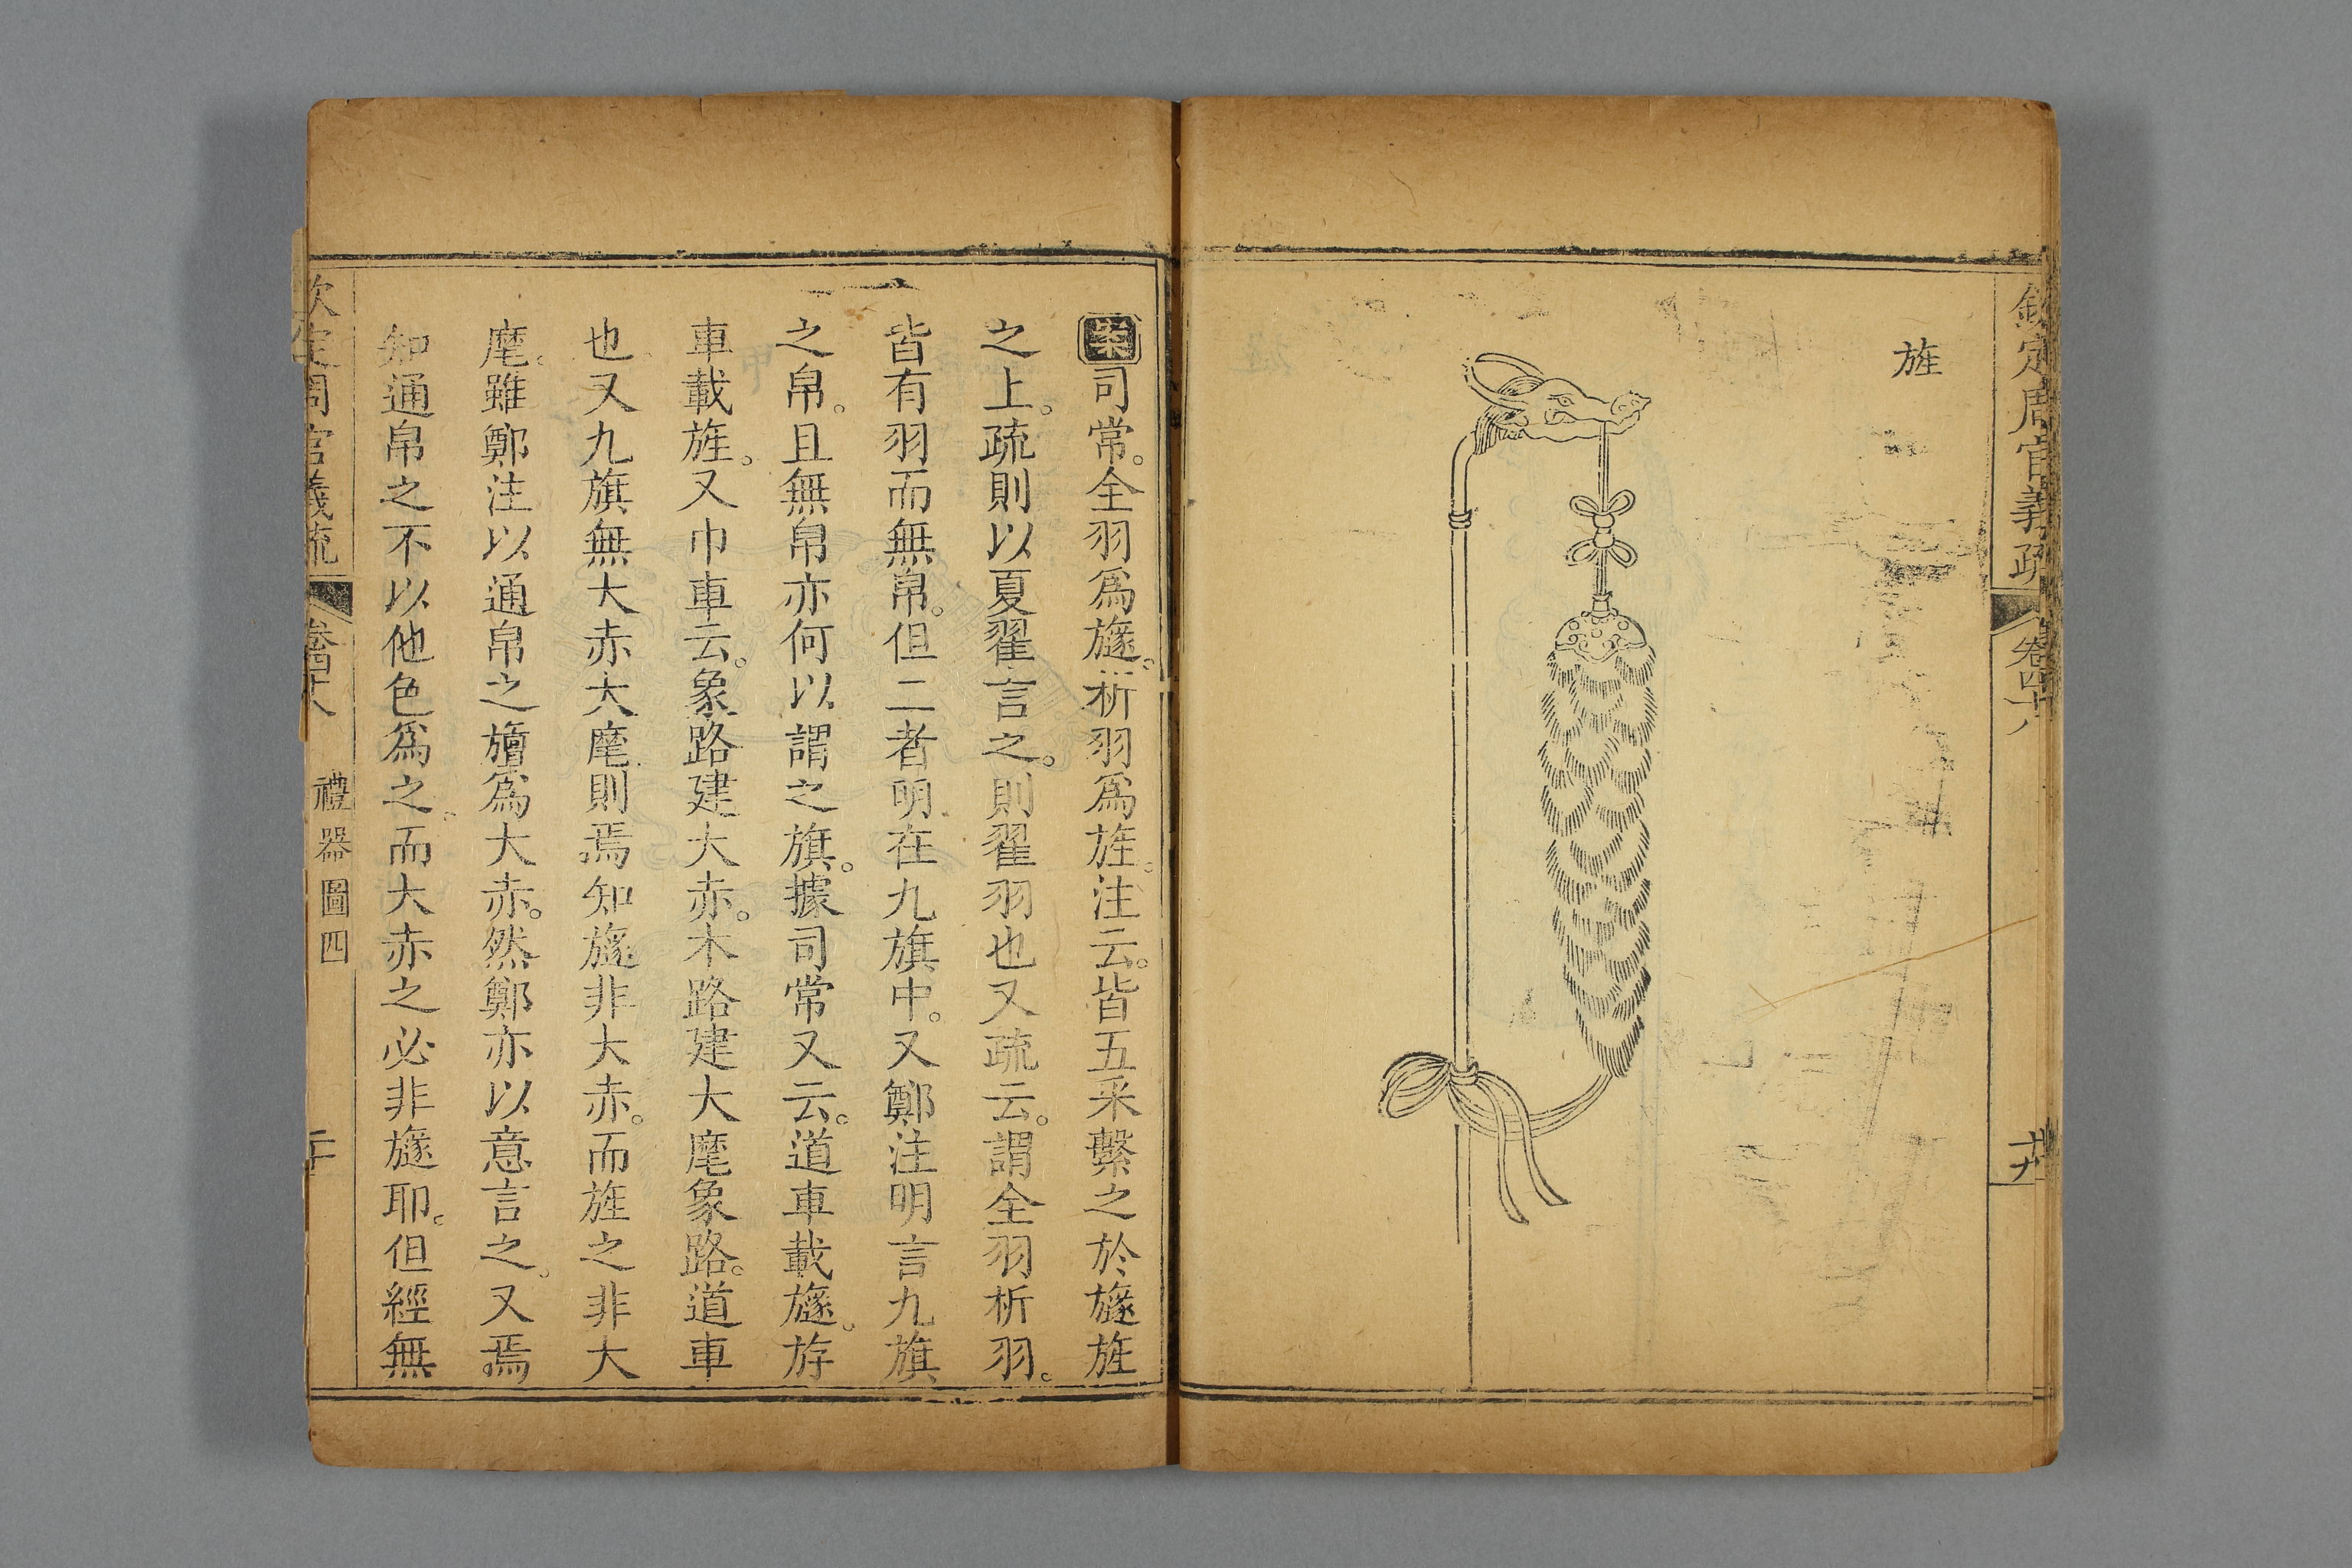 欽定周官義疏 卷四十八 十九
旌
案司常。全羽爲旞。析羽爲旌。注云。皆五采繫之於旞旌
之上。疏則以夏翟言之。則翟羽也又疏云。謂全羽析羽。
皆有羽而無帛。但二者明在九旗中。又鄭注明言九旗
之帛。且無帛亦何以謂之旗。據司常又云。道車載旞。斿
車載旌。又巾車云。象路建大赤。木路建大麾象路。道車
也。又九旗無大赤大麾則焉知旞非大赤。而旌之非大
麾。雖鄭注以通帛之旜爲大赤。然鄭亦以意言之。又焉
知通帛之不以他色爲之。而大赤之必非旞耶。但經無
欽定周官義疏 卷四十八 禮器圖四 二十